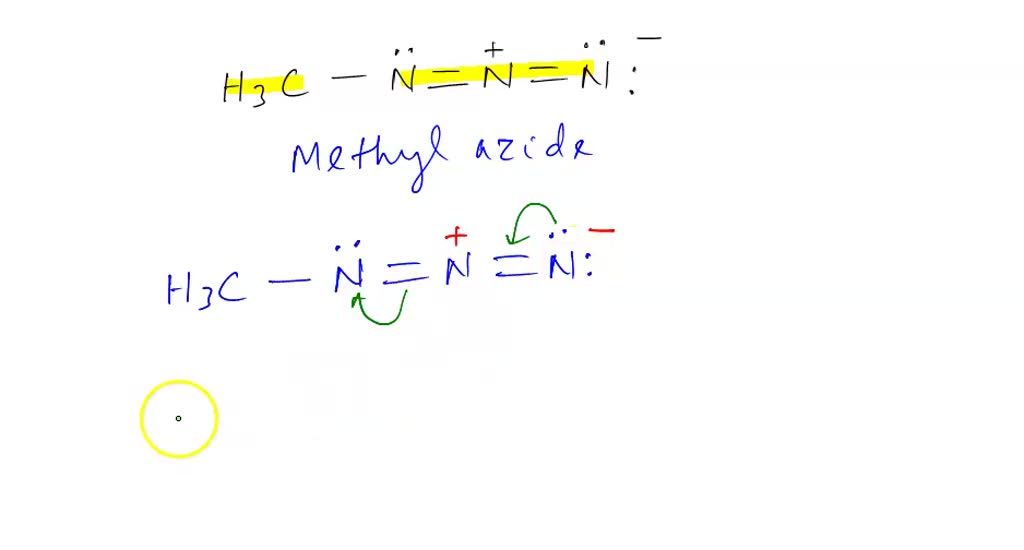 H3C — N̈ = N⁺ = N̈: ⁻
Methyl azide
H3C — N̈ = N⁺ = N̈: ⁻